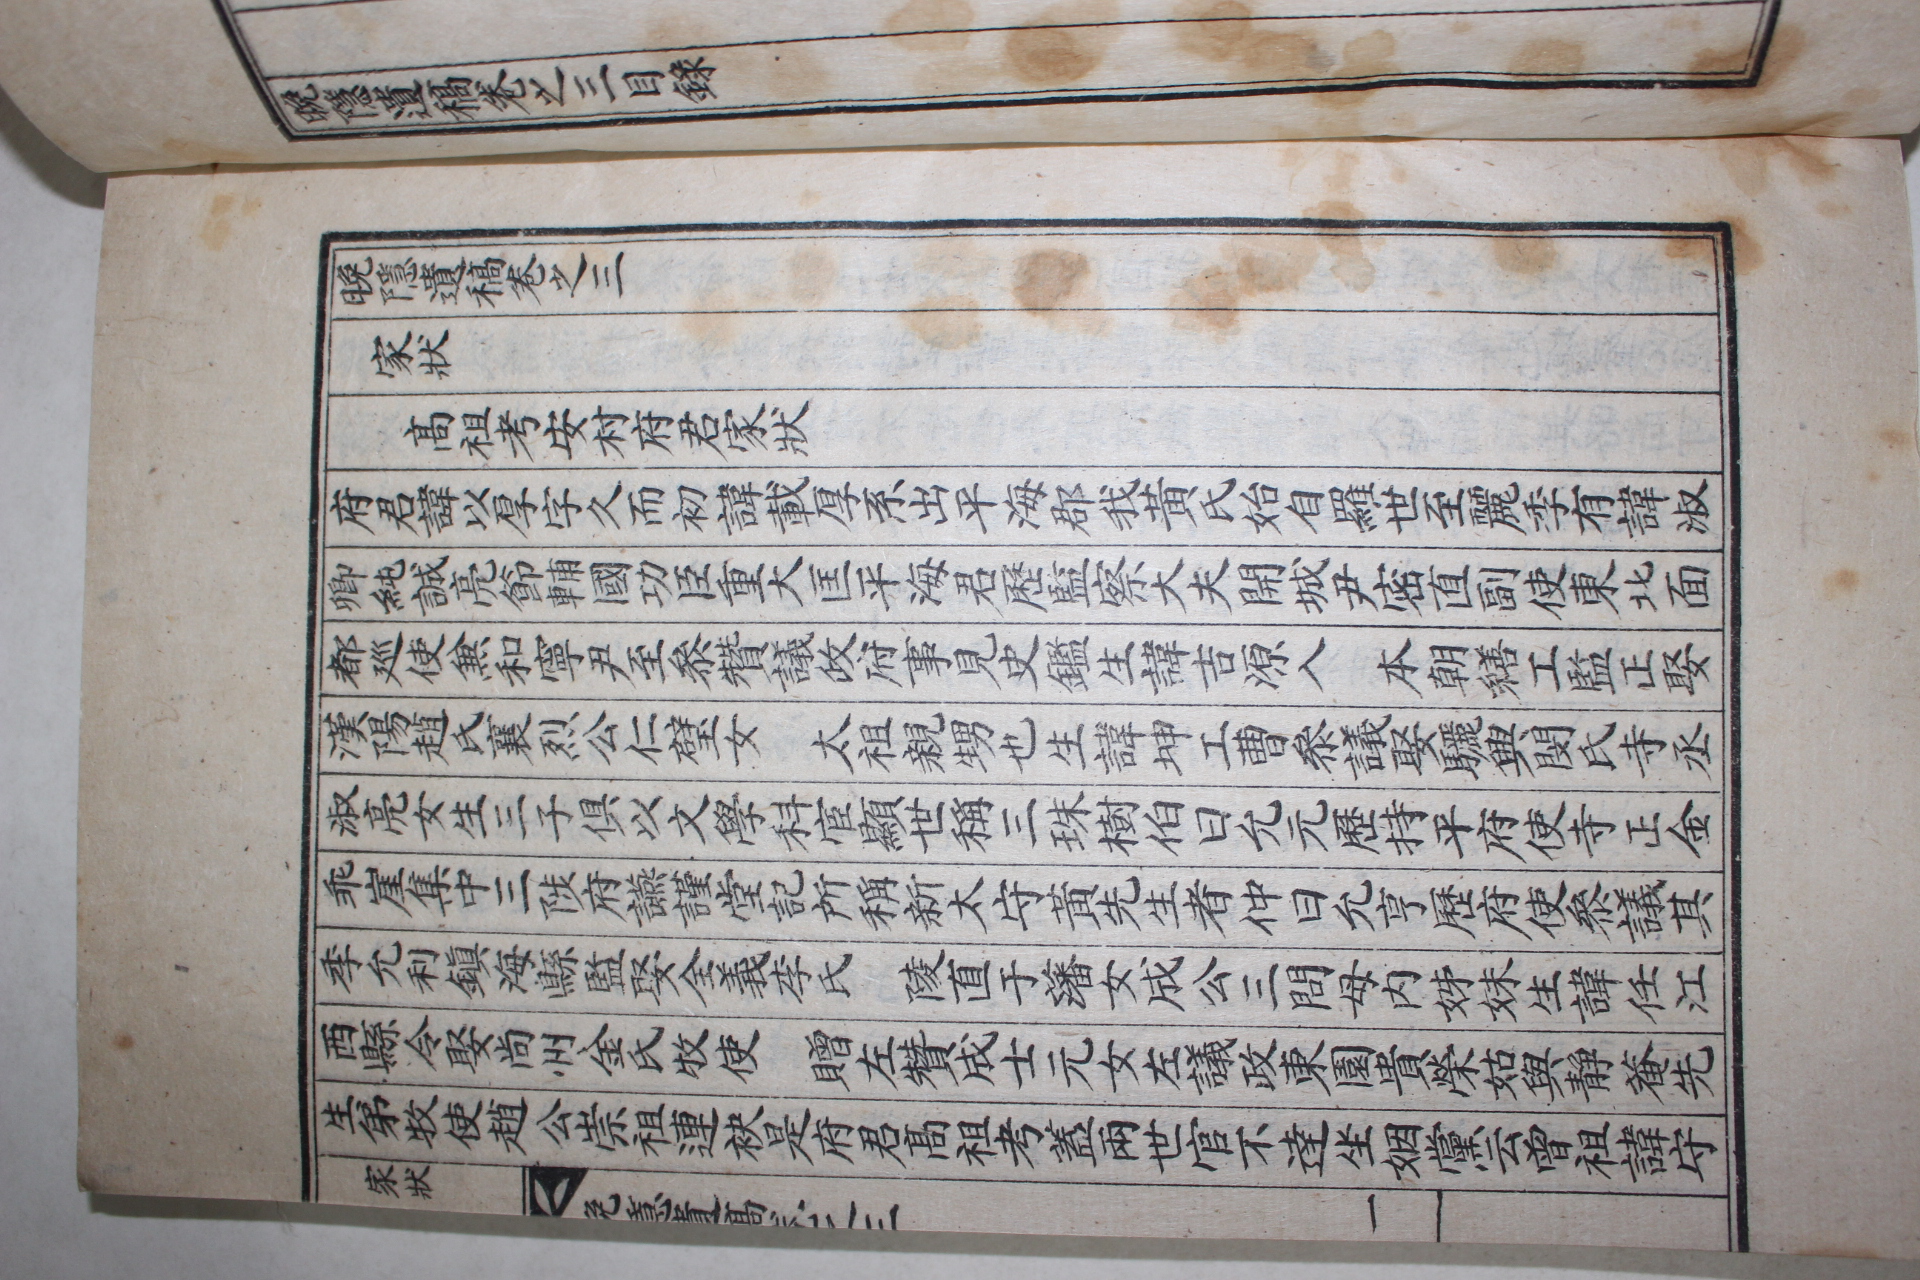 晩隱遺稿卷之三目錄
晩隱遺稿卷之三
家狀
高祖考安村府君家狀
府君諱以厚字久而初諱載厚系出平海郡我黃氏始自羅世至麗季有諱淑
卿純誠亮節輔國功臣重大匡平海君歷監察大夫開城尹密直副使東北面
都巡使兼和寧尹至參贊議政府事見史鑑生諱吉源入 本朝繕工監正娶
漢陽趙氏襄烈公仁璧女 太祖親甥也生諱坤工曹參議娶驪興閔氏寺丞
淑亮女生三子俱以文學科宦顯世稱三珠樹伯曰允元歷持平府使寺正金
乖崖集中三陟府讌謹堂記所稱新太守黃先生者仲曰允亨歷府使參議其
季允利鎭海縣監娶全義李氏 陵直于藩女成公三問母內姊妹生諱任江
西縣令娶尙州金氏牧使 贈左贊成士元女左議政東園貴榮姑與靜菴先
生弟牧使趙公崇祖連袂是府君高祖考蓋兩世官不達坐姻黨云曾祖諱守
家狀
晩隱遺稿卷之三
一